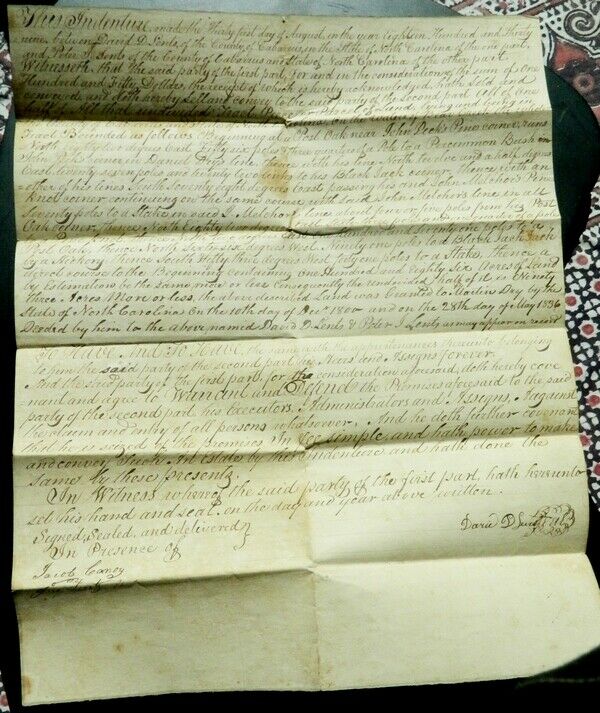 This Indenture, made the Thirty first day of August, in the year Eighteen Hundred and Thirty
nine between David D. Lents of the County of Cabarrus, in the State of North Carolina of the one part,
and Peter J. Lents of the County of Cabarrus and State of North Carolina of the other part
Witnesseth, that the said party of the first part, for and in the consideration of the sum of One
Hundred and Fifty Dollars the receipt of which is hereby acknowledged, hath Sold and
conveyed, and doth hereby Sell and convey to the said party of the Second part all of one
undivided Tract of Land lying and being in
Tract Bounded as follows Beginning at a Post Oak near John Peck's corner, runs
North Sixty two degrees East fifty six poles to a Persimmon Bush on
John corner in Daniel line, thence with his line North twelve and a half degrees
East twenty six poles and twenty two links to his Black Jack corner, thence with an
=other of his lines South Seventy eight degrees East passing his and John Melchor's
Knot corner continuing on the same course with said John Melchor's line in all
Seventy poles to a Stake, in said J. Melchor's line about four or five poles from his Post
Oak corner, thence South eighty
thence North Sixty six degrees West Ninety one poles to a Black Jack
by a Hickory thence South Fifty three degrees West forty one poles to a Stake, thence a
direct course to the Beginning containing one Hundred and Eighty Six Acres of Land
by Estimation be the same more or less consequently the undivided half is Ninety
three Acres More or less, the above described Land was Granted to
State of North Carolina on the 10th day of Decr 1800 and on the 28th day of May 1836
Deeded by him to the above named David D. Lents & Peter J Lents as may appear on record
To Have And To Have the same with the appurtenances thereunto belonging
to him the said party of the second part his Heirs and Assigns forever.
And the said party of the first part, for the consideration aforesaid, doth hereby cove
nant and agree to Warrant and Defend the Premises aforesaid to the said
party of the second part his Executors, Administrators and Assigns. Against
the claim and entry of all persons whatsoever. And he doth further covenant
that he is seized of the premises In Fee simple and hath power to make
and convey Such An Estate by this Indenture and hath done the
same by these presents.
In Witness whereof the said party of the first part, hath hereunto
set his hand and seal on the day and year above written.
Signed, Sealed, and delivered
In Presence of
David D Lents
Jacob